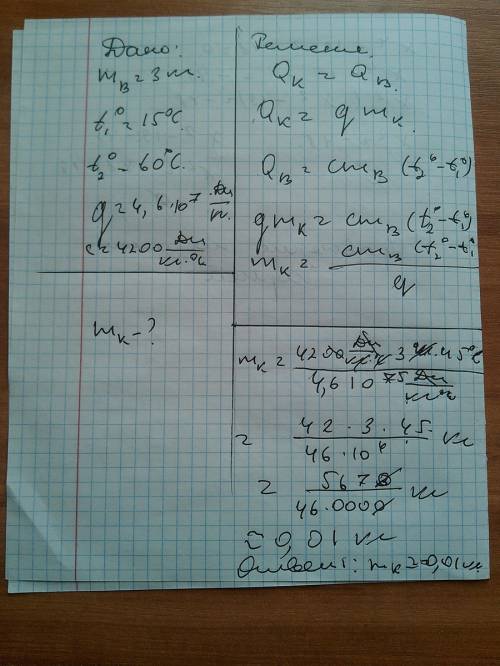 Дано:
m_в = 3 кг.
t₁° = 15°C.
t₂° - 60°C.
q = 4,6·10⁷ Дж/кг.
c = 4200 Дж/кг·°C
m_к - ?
Решение.
Q_к = Q_в.
Q_к = q m_к.
Q_в = c m_в (t₂° - t₁°)
q m_к = c m_в (t₂° - t₁°)
m_к = c m_в (t₂° - t₁°) / q
m_к = 4200 · 3 · 45° / 4,6 10
= 42 · 3 · 45 / 46 · 10⁶ кг
= 5670 / 46.0000 кг
≈ 0,01 кг
Ответ: m_к ≈ 0,01 кг.